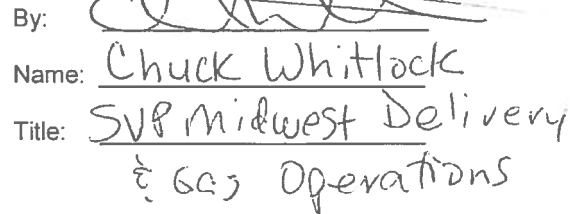 By:
Name: Chuck Whitlock
Title: SVP Midwest Delivery
& Gas Operations